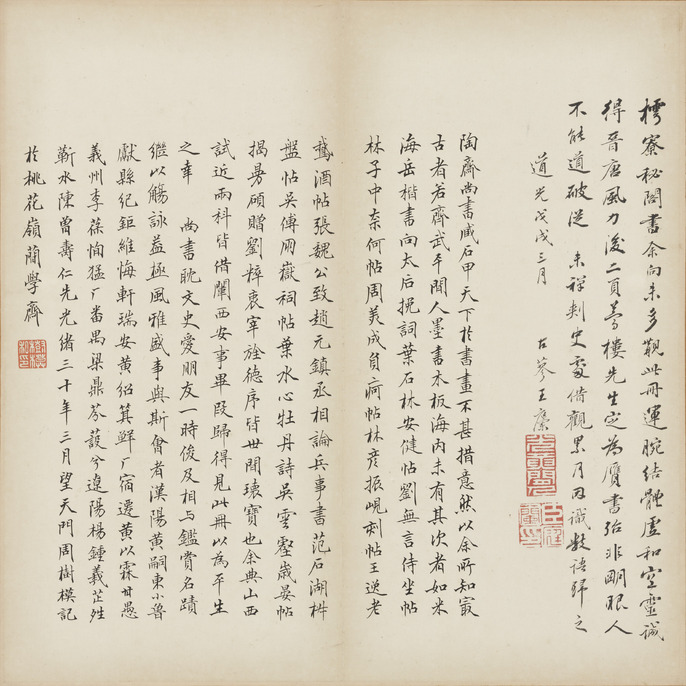 樗寮秘閣書余向未多觀此冊運腕結體虛和空靈識
得晉唐風力後二頁夢樓先生定為贗書殆非明眼人
不能道破從 未禪刺史處借觀累月因識數語歸之
道光戊戌三月
古蓼王
陶齋尚書臧石甲天下於書畫不甚措意然以余所知最
古者若齊武平聞人墨書木板海內未有其次者如米
海岳楷書向太后挽詞葉石林安健帖劉無言侍坐帖
林子中奈何帖周美成負疴帖林彥振峴刺帖王逸老
鵞酒帖張魏公致趙元鎮丞相論兵事書范石湖桝
盤帖吳傅朋嶽祠帖葉水心牡丹詩吳雲壑歲晏帖
揭曼碩贈劉粹衷宰旌德序皆世間瓌寶也余典山西
試近兩科皆借闈西安事畢段歸得見此冊以為平生
之幸 尚書耽文史愛朋友一時俊及相与鑑賞名蹟
繼以觴詠益極風雅盛事與斯會者漢陽黃嗣東小魯
獻縣紀鉅維悔軒瑞安黃紹箕鮮厂宿遷黃以霖毌愚
義州李葆恂猛厂番禺梁鼎芬䕶兮遼陽楊鍾羲芷姓
蘄水陳曾壽仁先光緒三十年三月望天門周樹模記
於桃花嶺蕳學齋